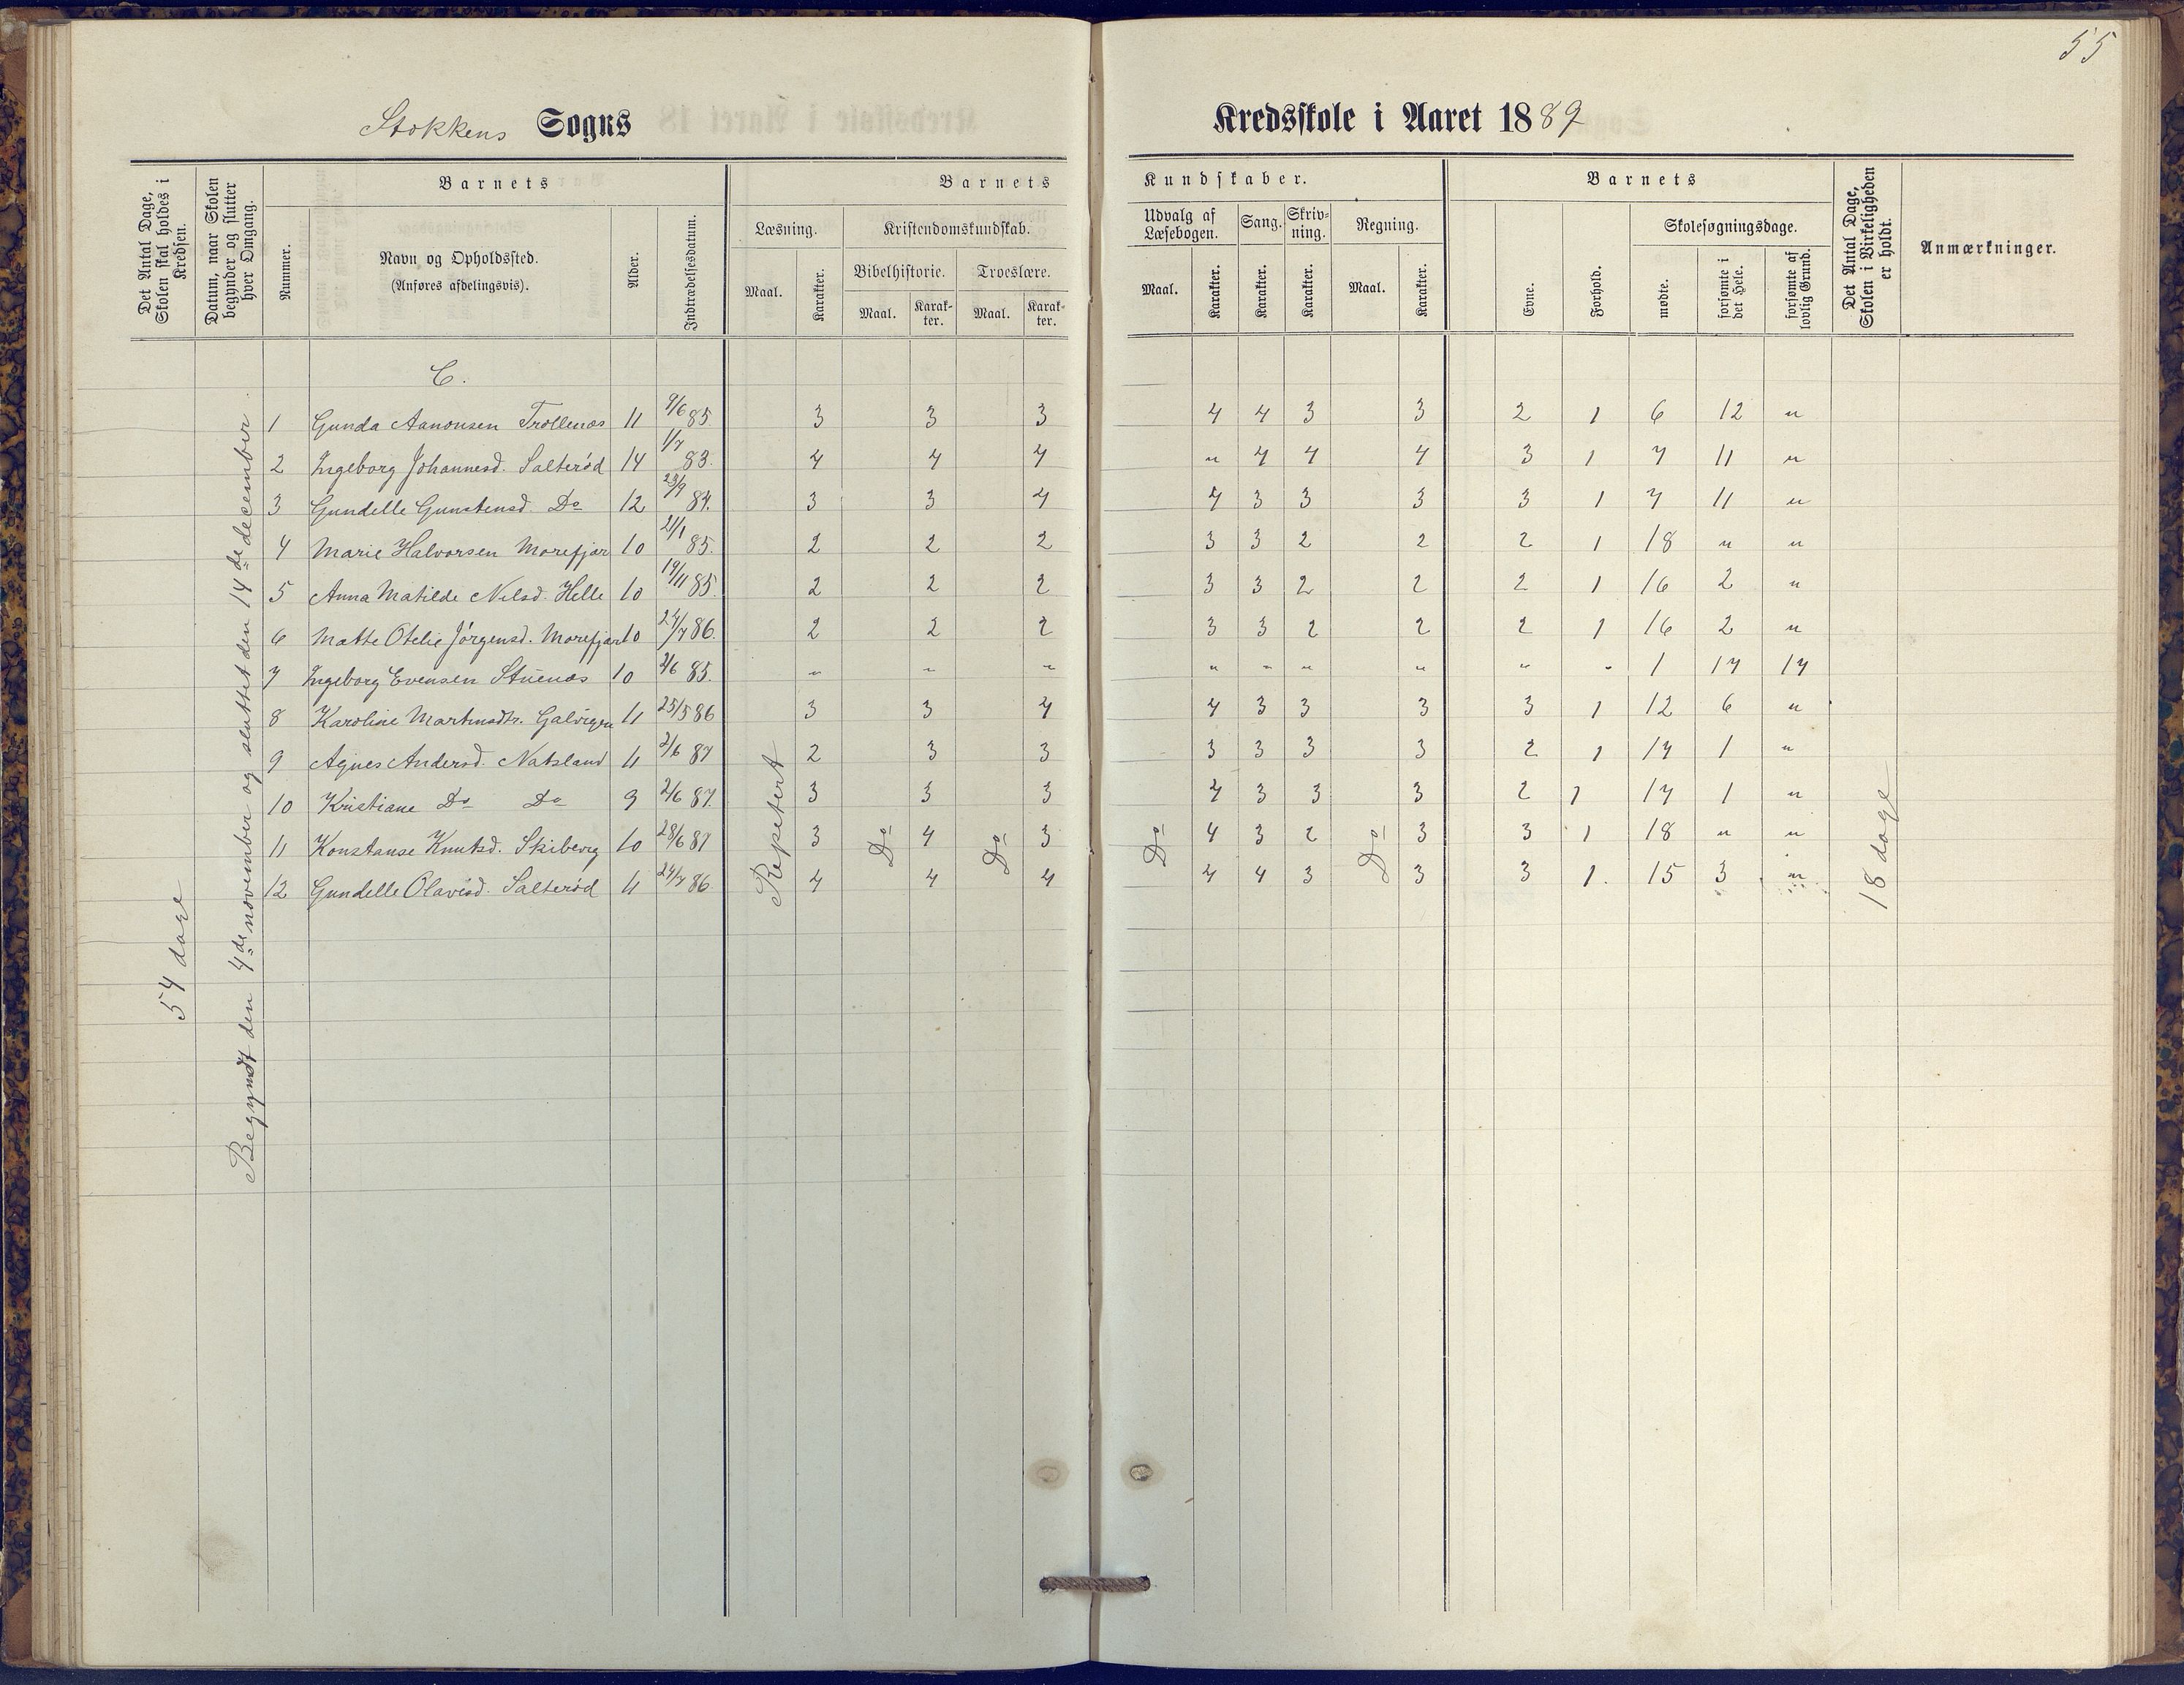 55
Stokkens Sogns
Kredsskole i Aaret 1889
Det Antal Dage, Skolen skal holdes i Kredsen.
Datum, naar Skolen begynder og slutter hver Omgang.
Barnets
Nummer.
Navn og Opholdssted.
(Anføres afdelingsvis).
Alder.
Indtrædelsesdatum.
Barnets Kundskaber.
Læsning.
Maal.
Karakter.
Kristendomskundskab.
Bibelhistorie.
Maal.
Karakter.
Troeslære.
Maal.
Karakter.
Udvalg af Læsebogen.
Maal.
Karakter.
Sang.
Karakter.
Skrivning.
Karakter.
Regning.
Maal.
Karakter.
Barnets
Evne.
Forhold.
Skolesøgningsdage.
mødte.
forsømte i det Hele.
forsømte af lovlig Grund.
Det Antal Dage, Skolen i Virkeligheden er holdt.
Anmærkninger.
54 dage
Begyndt den 4de november og sluttet den 14de december.
C.
1 Gunda Aanonsen Trollenæs 11 9/6 85. 3 3 3 4 4 3 3 2 1 6 12 "
2 Ingeborg Johannesd. Salterød 14 1/7 83. 4 4 4 " 4 4 4 3 1 7 11 "
3 Gundelle Gunstensd. Do 12 23/9 84. 3 3 4 4 3 3 3 3 1 7 11 "
4 Marie Halvorsen Morefjær 10 21/1 85. 2 2 2 3 3 2 2 2 1 18 " "
5 Anna Matilde Nilsd. Helle 10 19/11 85. 2 2 2 3 3 2 2 2 1 16 2 "
6 Matte Otelie Jørgensd. Morefjær 10 27/7 86. 2 2 2 3 3 2 2 2 1 16 2 "
7 Ingeborg Evensen Stuenæs 10 2/6 85. " " " " " " " " " 1 17 17
8 Karoline Martinsdtr. 11 25/5 86 3 3 4 4 3 3 3 3 1 12 6 "
9 Agnes Andersd. Natsland 11 2/6 87 2 3 3 3 3 3 3 2 1 17 1 "
10 Kristiane Do Do 9 2/6 87. 3 3 3 4 3 3 3 2 1 17 1 "
11 Konstanse Knutsd. Skiberig 10 28/6 87 3 4 3 4 3 2 3 3 1 18 " "
12 Gundelle Olavisd. Salterød 11 24/7 86. 4 4 4 4 4 3 3 3 1. 15 3 "
Repetert
Do
Do
Do
Do
18 dage